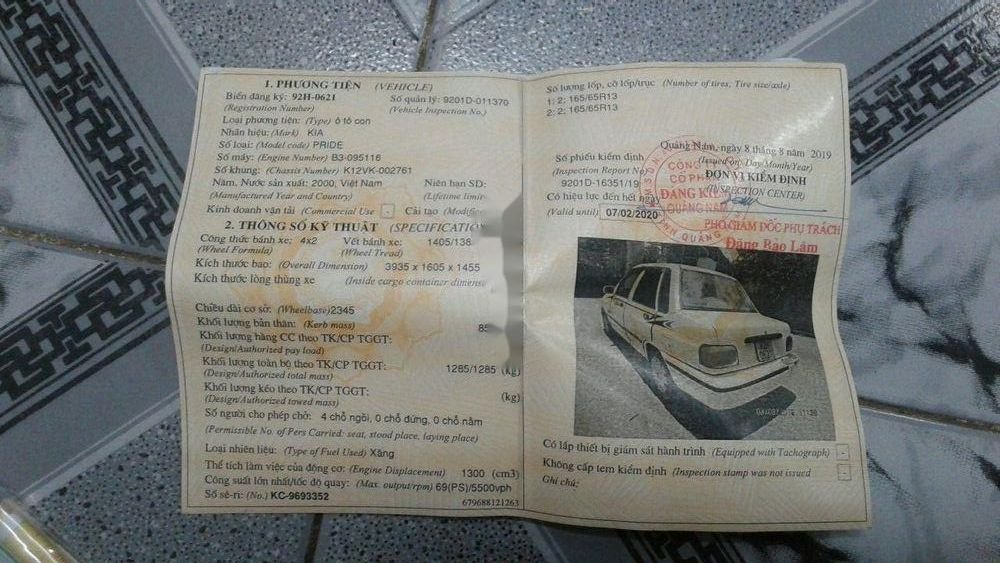 1. PHƯƠNG TIỆN (VEHICLE)
Biển đăng ký: 92H-0621 Số quản lý: 9201D-011370
(Registration Number) (Vehicle Inspection No.)
Loại phương tiện: (Type) ô tô con
Nhãn hiệu: (Mark) KIA
Số loại: (Model code) PRIDE
Số máy: (Engine Number) B3-095116
Số khung: (Chassis Number) K12VK-002761
Năm, Nước sản xuất: 2000, Việt Nam Niên hạn SD:
(Manufactured Year and Country) (Lifetime limit
Kinh doanh vận tải (Commercial Use - Cải tạo (Modific
2. THÔNG SỐ KỸ THUẬT (SPECIFICATION
Công thức bánh xe: 4x2 Vết bánh xe: 1405/138
(Wheel Formula) (Wheel Tread)
Kích thước bao: (Overall Dimension) 3935 x 1605 x 1455
Kích thước lòng thùng xe (Inside cargo container dimens
Chiều dài cơ sở: (Wheelbase)2345
Khối lượng bản thân: (Kerb mass) 85
Khối lượng hàng CC theo TK/CP TGGT:
(Design/Authorised pay load)
Khối lượng toàn bộ theo TK/CP TGGT: 1285/1285 (kg)
(Design/Authorized total mass)
Khối lượng kéo theo TK/CP TGGT: (kg)
(Design/Authorized towed mass)
Số người cho phép chở: 4 chỗ ngồi, 0 chỗ đứng, 0 chỗ nằm
(Permissible No. of Pers Carried: seat, stood place, laying place)
Loại nhiên liệu: (Type of Fuel Used) Xăng
Thể tích làm việc của động cơ: (Engine Displacement) 1300 (cm3)
Công suất lớn nhất/tốc độ quay: (Max. output/rpm) 69(PS)/5500vph
Số sê-ri: (No.) KC-9693352 679688121263
Số lượng lốp, cỡ lốp/trục (Number of tires, Tire size/axle)
1: 2: 165/65R13
2: 2: 165/65R13
Quảng Nam, ngày 8 tháng 8 năm 2019
(Issued on: Day/Month/Year)
Số phiếu kiểm định ĐƠN VỊ KIỂM ĐỊNH
(Inspection Report No) (INSPECTION CENTER)
9201D-16351/19
Có hiệu lực đến hết ngày
(Valid until) 07/02/2020
CÔNG
CỔ PH
ĐĂNG KIỂ
QUẢNG NAM
PHÓ GIÁM ĐỐC PHỤ TRÁCH
Đặng Bảo Lâm
Có lắp thiết bị giám sát hành trình (Equipped with Tachograph) -
Không cấp tem kiểm định (Inspection stamp was not issued
Ghi chú: